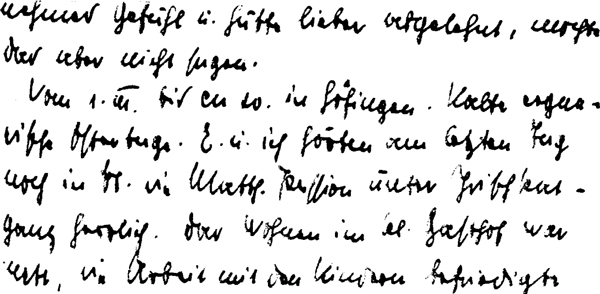 nehmes Gefühl u. hätte lieber abgelehnt, mochte
das aber nicht sagen.
Vom 1. III. bis 20. in Höfingen. Kalte regne-
rische Ostertage. E. u. ich hörten am letzten Tag
noch in St. die Matth. Passion unter
ganz herrlich. Das Wohnen im kl. Gasthof war
nett, die Arbeit mit den Kindern befriedigte